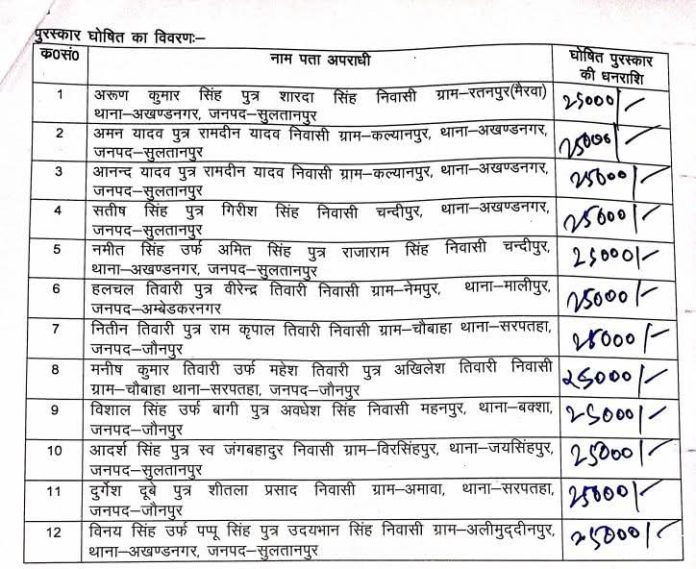 पुरस्कार घोषित का विवरणः–
क0सं0 नाम पता अपराधी घोषित पुरस्कार
की धनराशि
1 अरूण कुमार सिंह पुत्र शारदा सिंह निवासी ग्राम–रतनपुर(मैरवा) 25000/-
थाना–अखण्डनगर, जनपद–सुलतानपुर
2 अमन यादव पुत्र रामदीन यादव निवासी ग्राम–कल्यानपुर, थाना–अखण्डनगर, 25000/-
जनपद–सुलतानपुर
3 आनन्द यादव पुत्र रामदीन यादव निवासी ग्राम–कल्यानपुर, थाना–अखण्डनगर, 25000/-
जनपद–सुलतानपुर
4 सतीष सिंह पुत्र गिरीश सिंह निवासी चन्दीपुर, थाना–अखण्डनगर, 25000/-
जनपद–सुलतानपुर
5 नमीत सिंह उर्फ अमित सिंह पुत्र राजाराम सिंह निवासी चन्दीपुर, 25000/-
थाना–अखण्डनगर, जनपद–सुलतानपुर
6 हलचल तिवारी पुत्र वीरेन्द्र तिवारी निवासी ग्राम–नेमपुर, थाना–मालीपुर, 25000/-
जनपद–अम्बेडकरनगर
7 नितीन तिवारी पुत्र राम कृपाल तिवारी निवासी ग्राम–चौबाहा थाना–सरपतहा, 25000/-
जनपद–जौनपुर
8 मनीष कुमार तिवारी उर्फ महेश तिवारी पुत्र अखिलेश तिवारी निवासी 25000/-
ग्राम–चौबाहा थाना–सरपतहा, जनपद–जौनपुर
9 विशाल सिंह उर्फ बागी पुत्र अवधेश सिंह निवासी महनपुर, थाना–बक्शा, 25000/-
जनपद–जौनपुर
10 आदर्श सिंह पुत्र स्व जंगबहादुर निवासी ग्राम–विरसिंहपुर, थाना–जयसिंहपुर, 25000/-
जनपद–सुलतानपुर
11 दुर्गेश दूबे पुत्र शीतला प्रसाद निवासी ग्राम–अमावा, थाना–सरपतहा, 25000/-
जनपद–जौनपुर
12 विनय सिंह उर्फ पप्पू सिंह पुत्र उदयभान सिंह निवासी ग्राम–अलीमुद्दीनपुर, 25000/-
थाना–अखण्डनगर, जनपद–सुलतानपुर